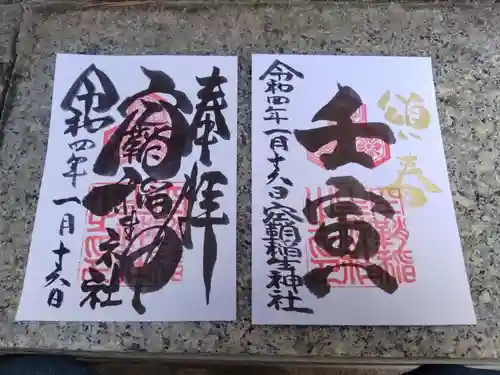 頌春
壬寅
令和四年一月十六日 空鞘稲生神社
奉拝
空鞘稲生神社
令和四年一月十六日